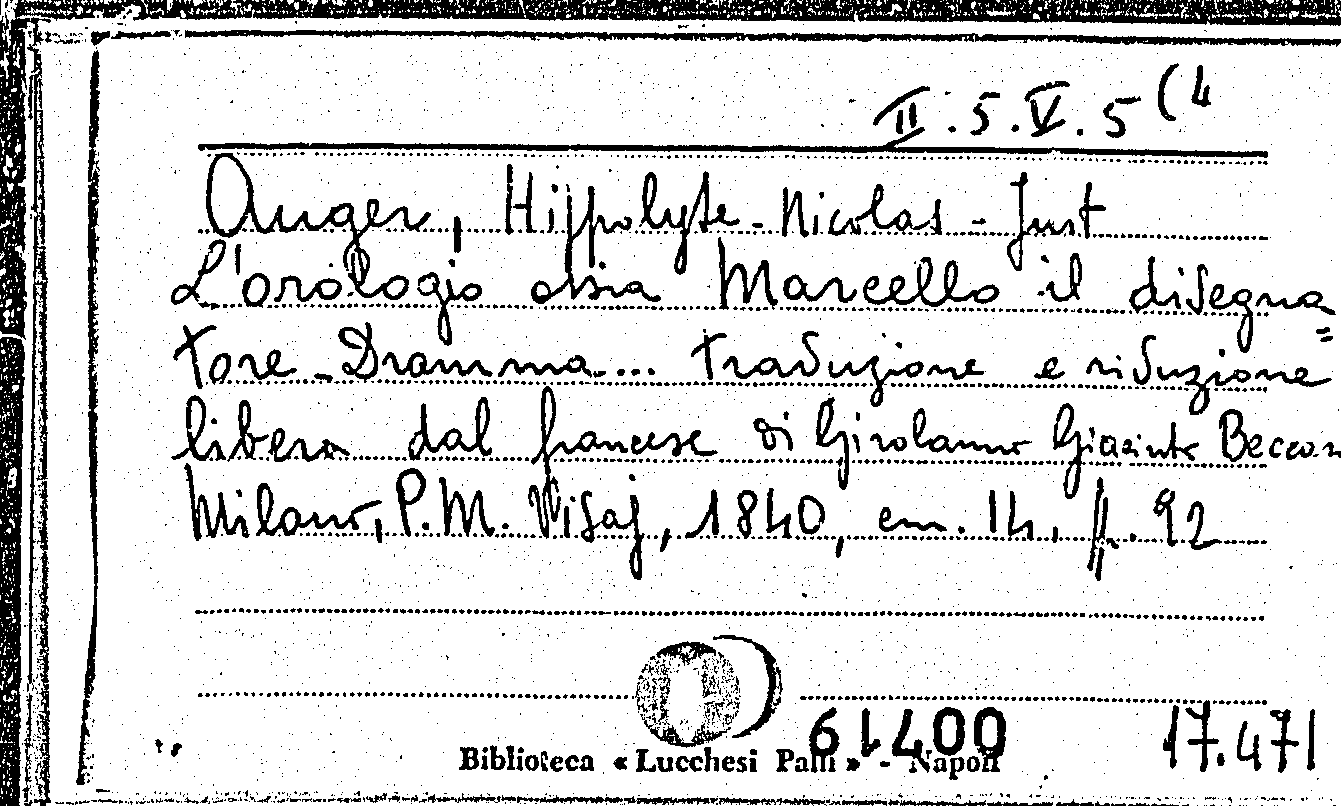 II.5.V.5(4
Auger, Hippolyte-Nicolas-Just
L'orologio ossia Marcello il disegna=
tore_Dramma.... traduzione e riduzione
libera dal francese di Girolamo Giacinto
Milano, P.M. Visaj, 1840, cm. 14, pp. 92
17.471
Biblioteca « Lucchesi Palli » - Napoli